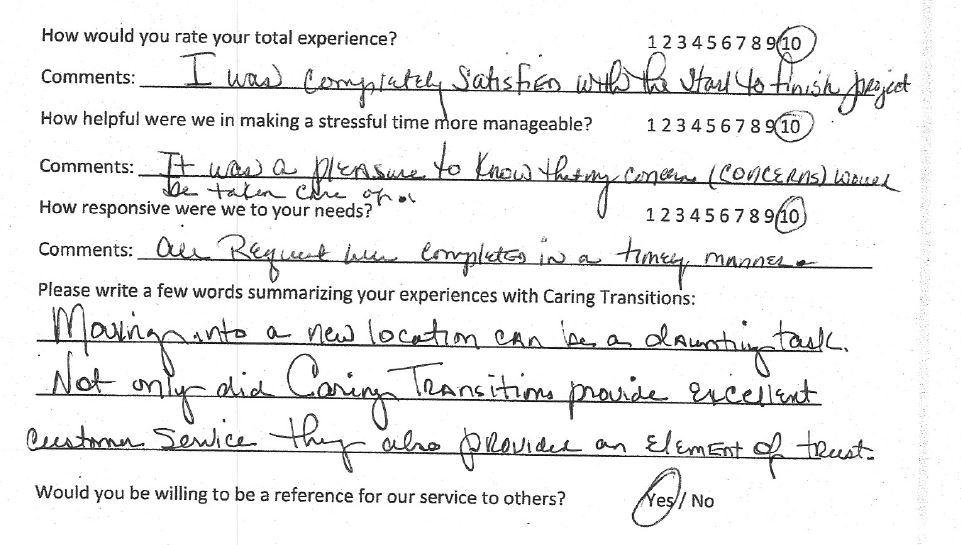 How would you rate your total experience? 1 2 3 4 5 6 7 8 9 10
Comments: I was completely satisfied with the start to finish project
How helpful were we in making a stressful time more manageable? 1 2 3 4 5 6 7 8 9 10
Comments: It was a pleasure to know that my concern (CONCERNS) would
be taken care of.
How responsive were we to your needs? 1 2 3 4 5 6 7 8 9 10
Comments: All Request were completed in a timely manner.
Please write a few words summarizing your experiences with Caring Transitions:
Moving into a new location can be a daunting task.
Not only did Caring Transitions provide excellent
customer service they also provided an element of trust.
Would you be willing to be a reference for our service to others? Yes / No